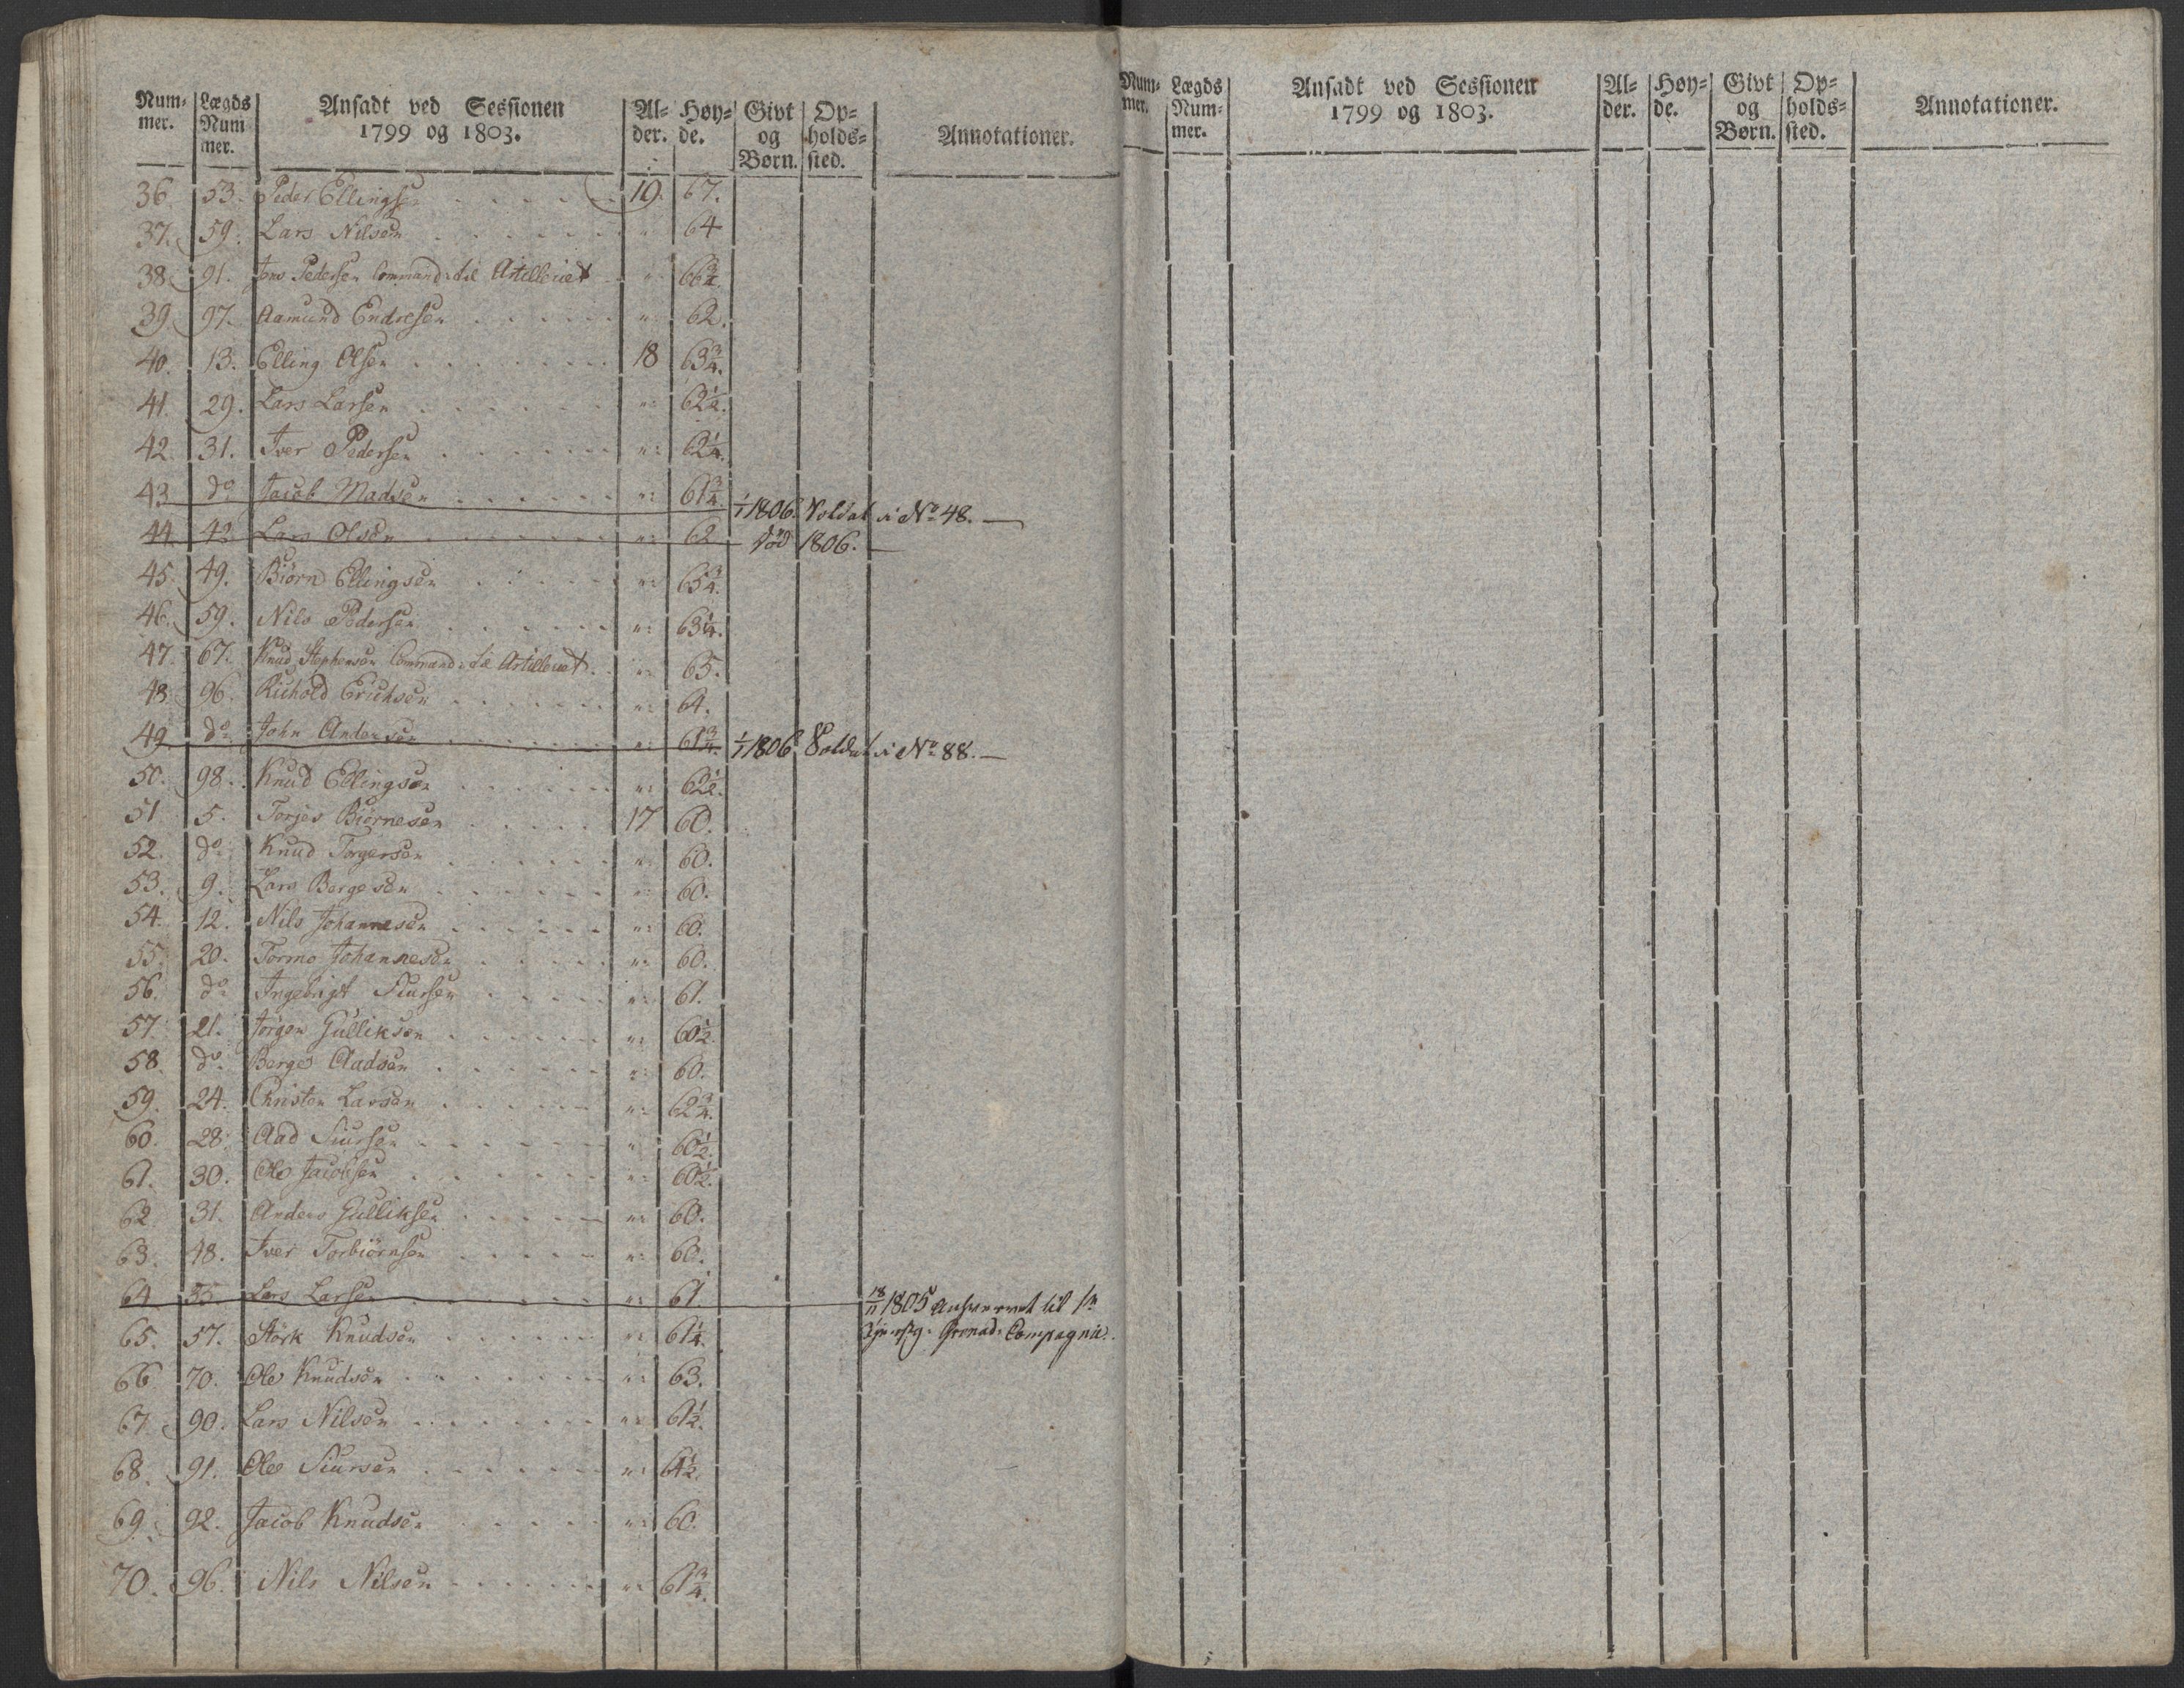 Num- Lægds Ansadt ved Sessionen Al- Høy- Givt Op- Annotationer.
mer. Num 1799 og 1803. der. de. og holds-
mer. Børn. sted.
36. 53. Peder Ellingsen 19. 67.
37. 59. Lars Nilsen " 64
38. 91. Jens Pedersen Command: til Artilleriet " 66 3/4.
39. 97. Aamund Endresen " 62.
40. 13. Elling Olsen 18 63 3/4.
41. 29. Lars Larsen " 62 1/2.
42. 31. Iver Pedersen " 62 1/4.
43 do Jacob Madsen " 61 3/4. 1/1 1806. Soldat i No 48. —
44. 42. Lars Olsen " 62 død 1806. —
45. 49. Biörn Ellingsen " 65 3/4.
46. 59. Nils Pedersen " 63 1/4.
47. 67. Knud Stephensen Command: til Artilleriet " 65.
48. 96. Richold Erichsen " 64.
49 do John Andersen " 61 3/4. 1/1 1806. Soldat i No 88. —
50. 98. Knud Ellingsen " 62 1/2.
51 5. Torjes Biörnesen 17 60.
52. do Knud Torgersen " 60.
53. 9. Lars Bergesen " 60.
54. 12. Nils Johannesen " 60.
55. 20. Tormo Johannesen " 60.
56. do Ingebrigt Siursen " 61.
57. 21. Jörgen Gulliksen " 60 1/2.
58. do Berge Aadsen " 60.
59. 24. Christen Larsen " 62 3/4.
60. 28. Aad Siursen " 60 1/2.
61. 30. Ole Jacobsen " 60 1/2.
62. 31. Anders Gulliksen " 60.
63. 48. Iver Torbiörnsen " 60.
64 55. Lars Larsen " 61. 18/11 1805 Anhvervet til 1te
65. 57. Störk Knudsen " 61 1/4. Grenad: Compagnie.
66. 70. Ole Knudsen " 63.
67. 90. Lars Nilsen " 61 1/2.
68. 91. Ole Siursen " 61 1/2.
69. 92. Jacob Knudsen " 60.
70. 96. Nils Nilsen " 61 3/4.
Num- Lægds Ansadt ved Sessionen Al- Høy- Givt Op- Annotationer.
mer. Num- 1799 og 1803. der. de. og holds-
mer. Børn. sted.